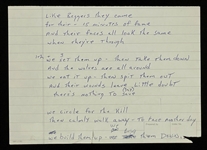 Like Beggers they came
for their 15 minutes of fame
And their faces all look the same
when they're through
we set them up - then take them down
And the waters are all around
we set it up - then spit them out
And their words leave little doubt
there's nothing to save
we circle for the kill
then calmly walk away - To face another day
we build them up - them Down